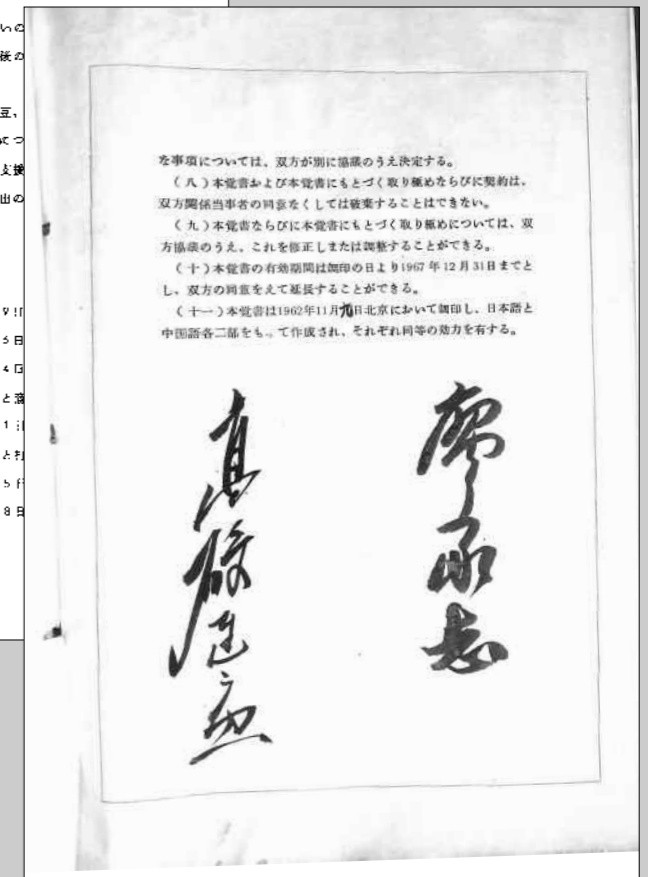 な事項については、双方が別に協議のうえ決定する。
(八)本覚書および本覚書にもとづく取り極めならびに契約は、
双方関係当事者の同意なくしては破棄することはできない。
(九)本覚書ならびに本覚書にもとづく取り極めについては、双
方協議のうえ、これを修正しまたは調整することができる。
(十)本覚書の有効期間は調印の日より1967年12月31日までと
し、双方の同意をえて延長することができる。
(十一)本覚書は1962年11月九日北京において調印し、日本語と
中国語各二部をもって作成され、それぞれ同等の効力を有する。
廖承志
高碕達之助
いの
後の
豆,
につ
支援
出の